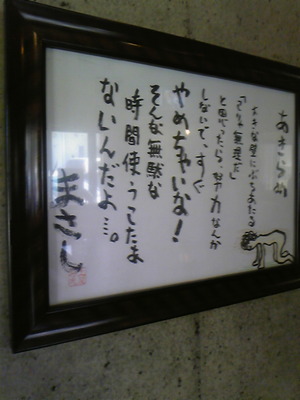 あきらめ
大きな壁にぶちあたる
「これ無理だ」
と思ったら、努力なんか
しないで、すぐ
やめちゃいな!
そんな無駄な
時間使うてたま
ないんだよ…。
まさし